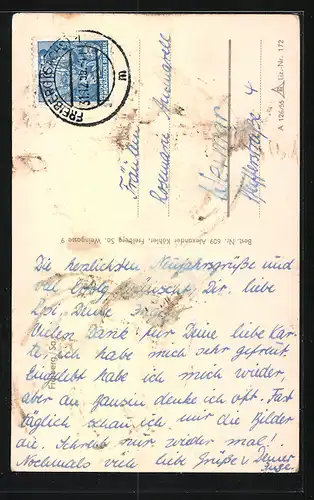 FREIBERG (SACHS)
m
A 126/56 Liz.-Nr. 172
Fräulein
Rosemarie
Weimar
straße 4
Best. Nr. 609 Alexander Köhler, Freiberg Sa. Weingasse 9
Freiberg / Sa.
Die herzlichsten Neujahrsgrüße und
viel Erfolg wünscht Dir, liebe
Deine
Vielen Dank für Deine liebe Kar-
te, ich habe mich sehr gefreut.
habe ich mich wider,
aber an denke ich oft. Fast
täglich schau ich mir die Bilder
an. Schreib mir wieder mal!
Nochmals viele liebe Grüße v. Deiner
Inge.